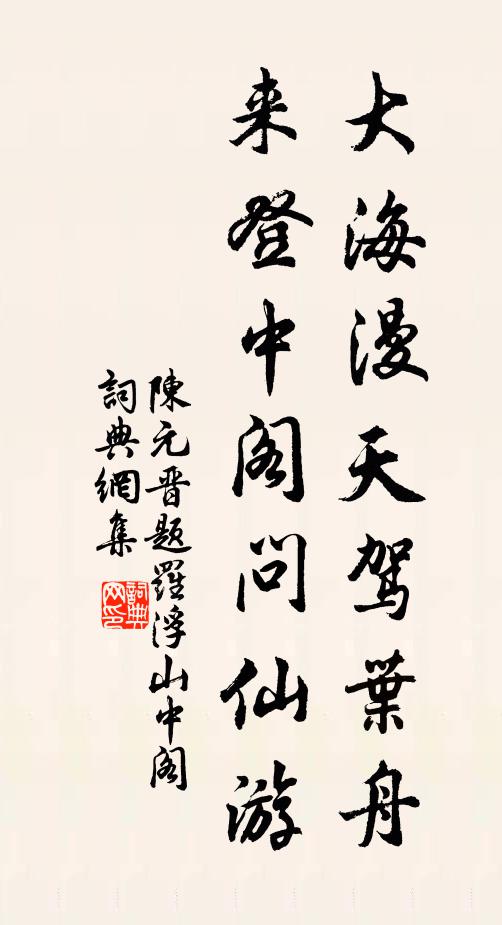 大海漫天驾葉舟
来登中阁问仙游
陳元晋題羅浮山中阁
詞典網集
詞典网印